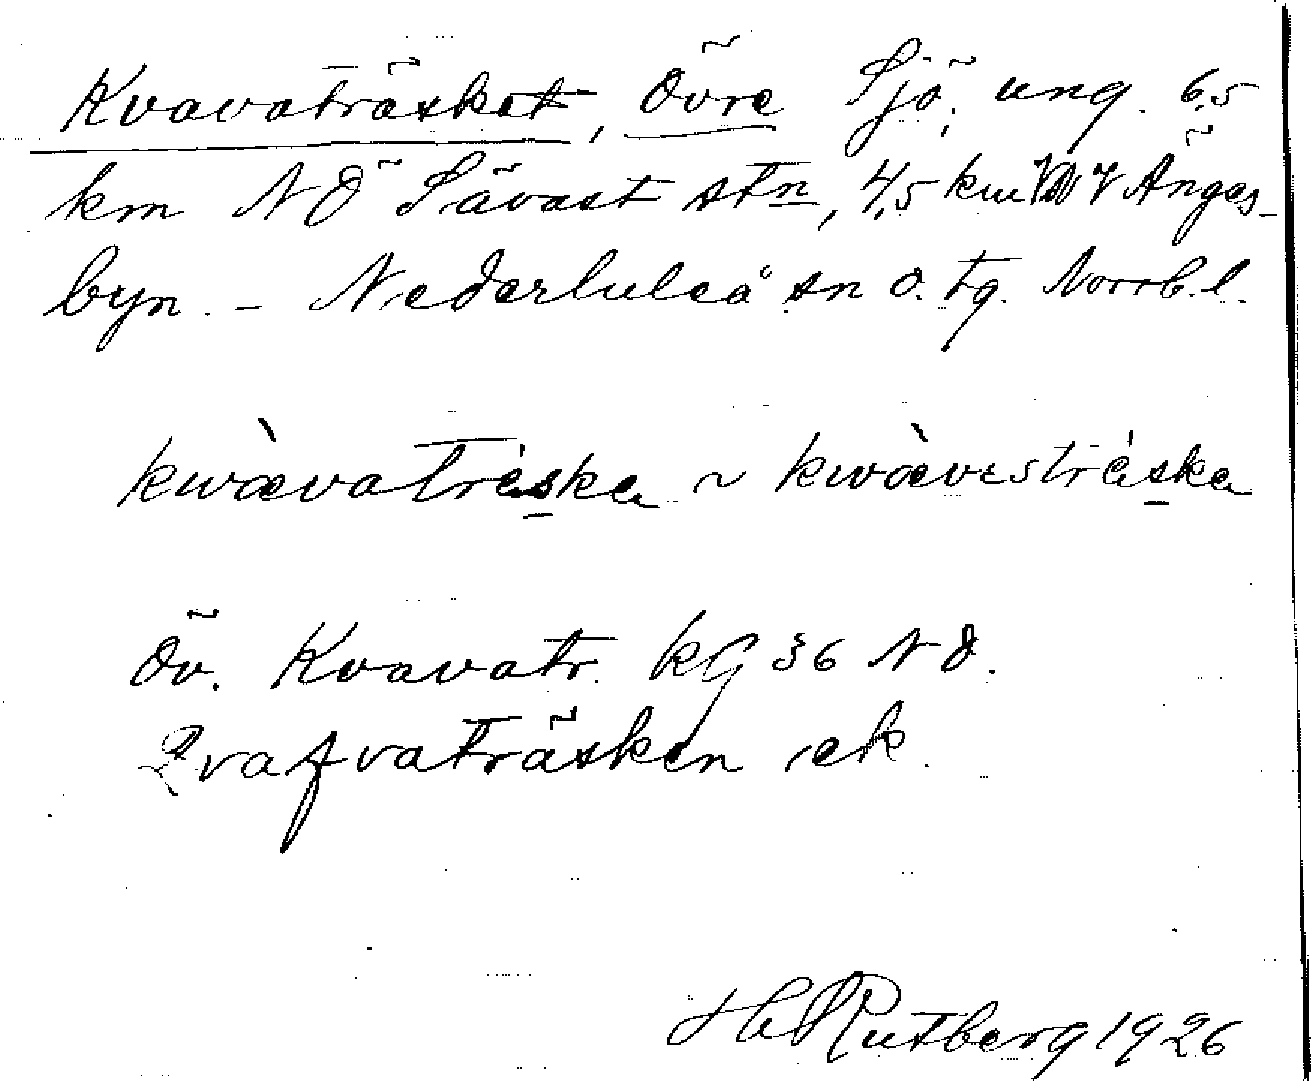 Kvavaträsket, Övre Sjö, ung. 6,5
km NÖ Sävast stn, 4,5 km V Änges-
byn. – Nederluleå sn ö. tg. Norrb. l.
kwàvaträska ~ kwàvesträska
Öv. Kvavatr. kG 36 NÖ.
Qvafvaträsken ek.
H Rutberg 1926